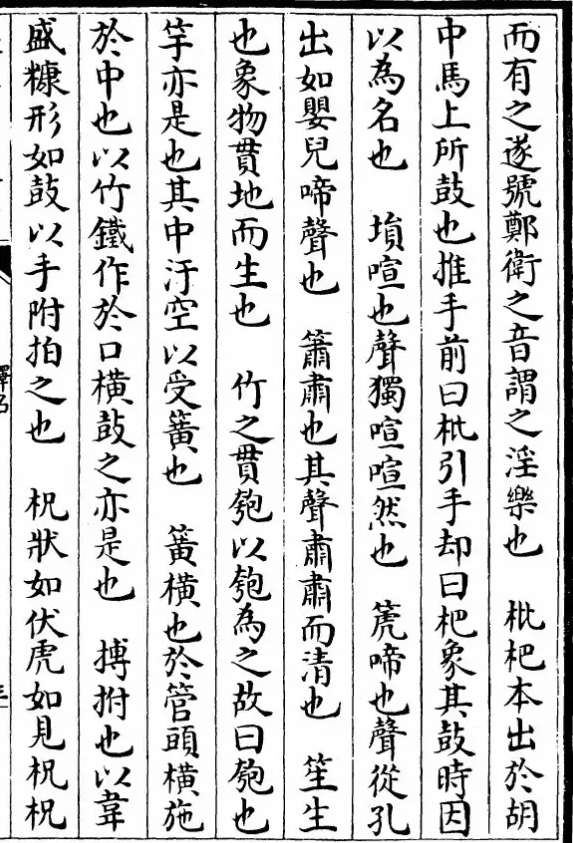 而有之遂號鄭衛之音謂之淫樂也　枇杷本出於胡
中馬上所鼓也推手前曰枇引手却曰杷象其鼓時因
以為名也　塤喧也聲獨喧喧然也　箎啼也聲從孔
出如嬰兒啼聲也　簫肅也其聲肅肅而清也　笙生
也象物貫地而生也　竹之貫匏以匏為之故曰匏也
竽亦是也其中汙空以受簧也　簧橫也於管頭橫施
於中也以竹鐵作於口橫鼓之亦是也　搏拊也以韋
盛糠形如鼓以手附拍之也　柷狀如伏虎如見柷柷